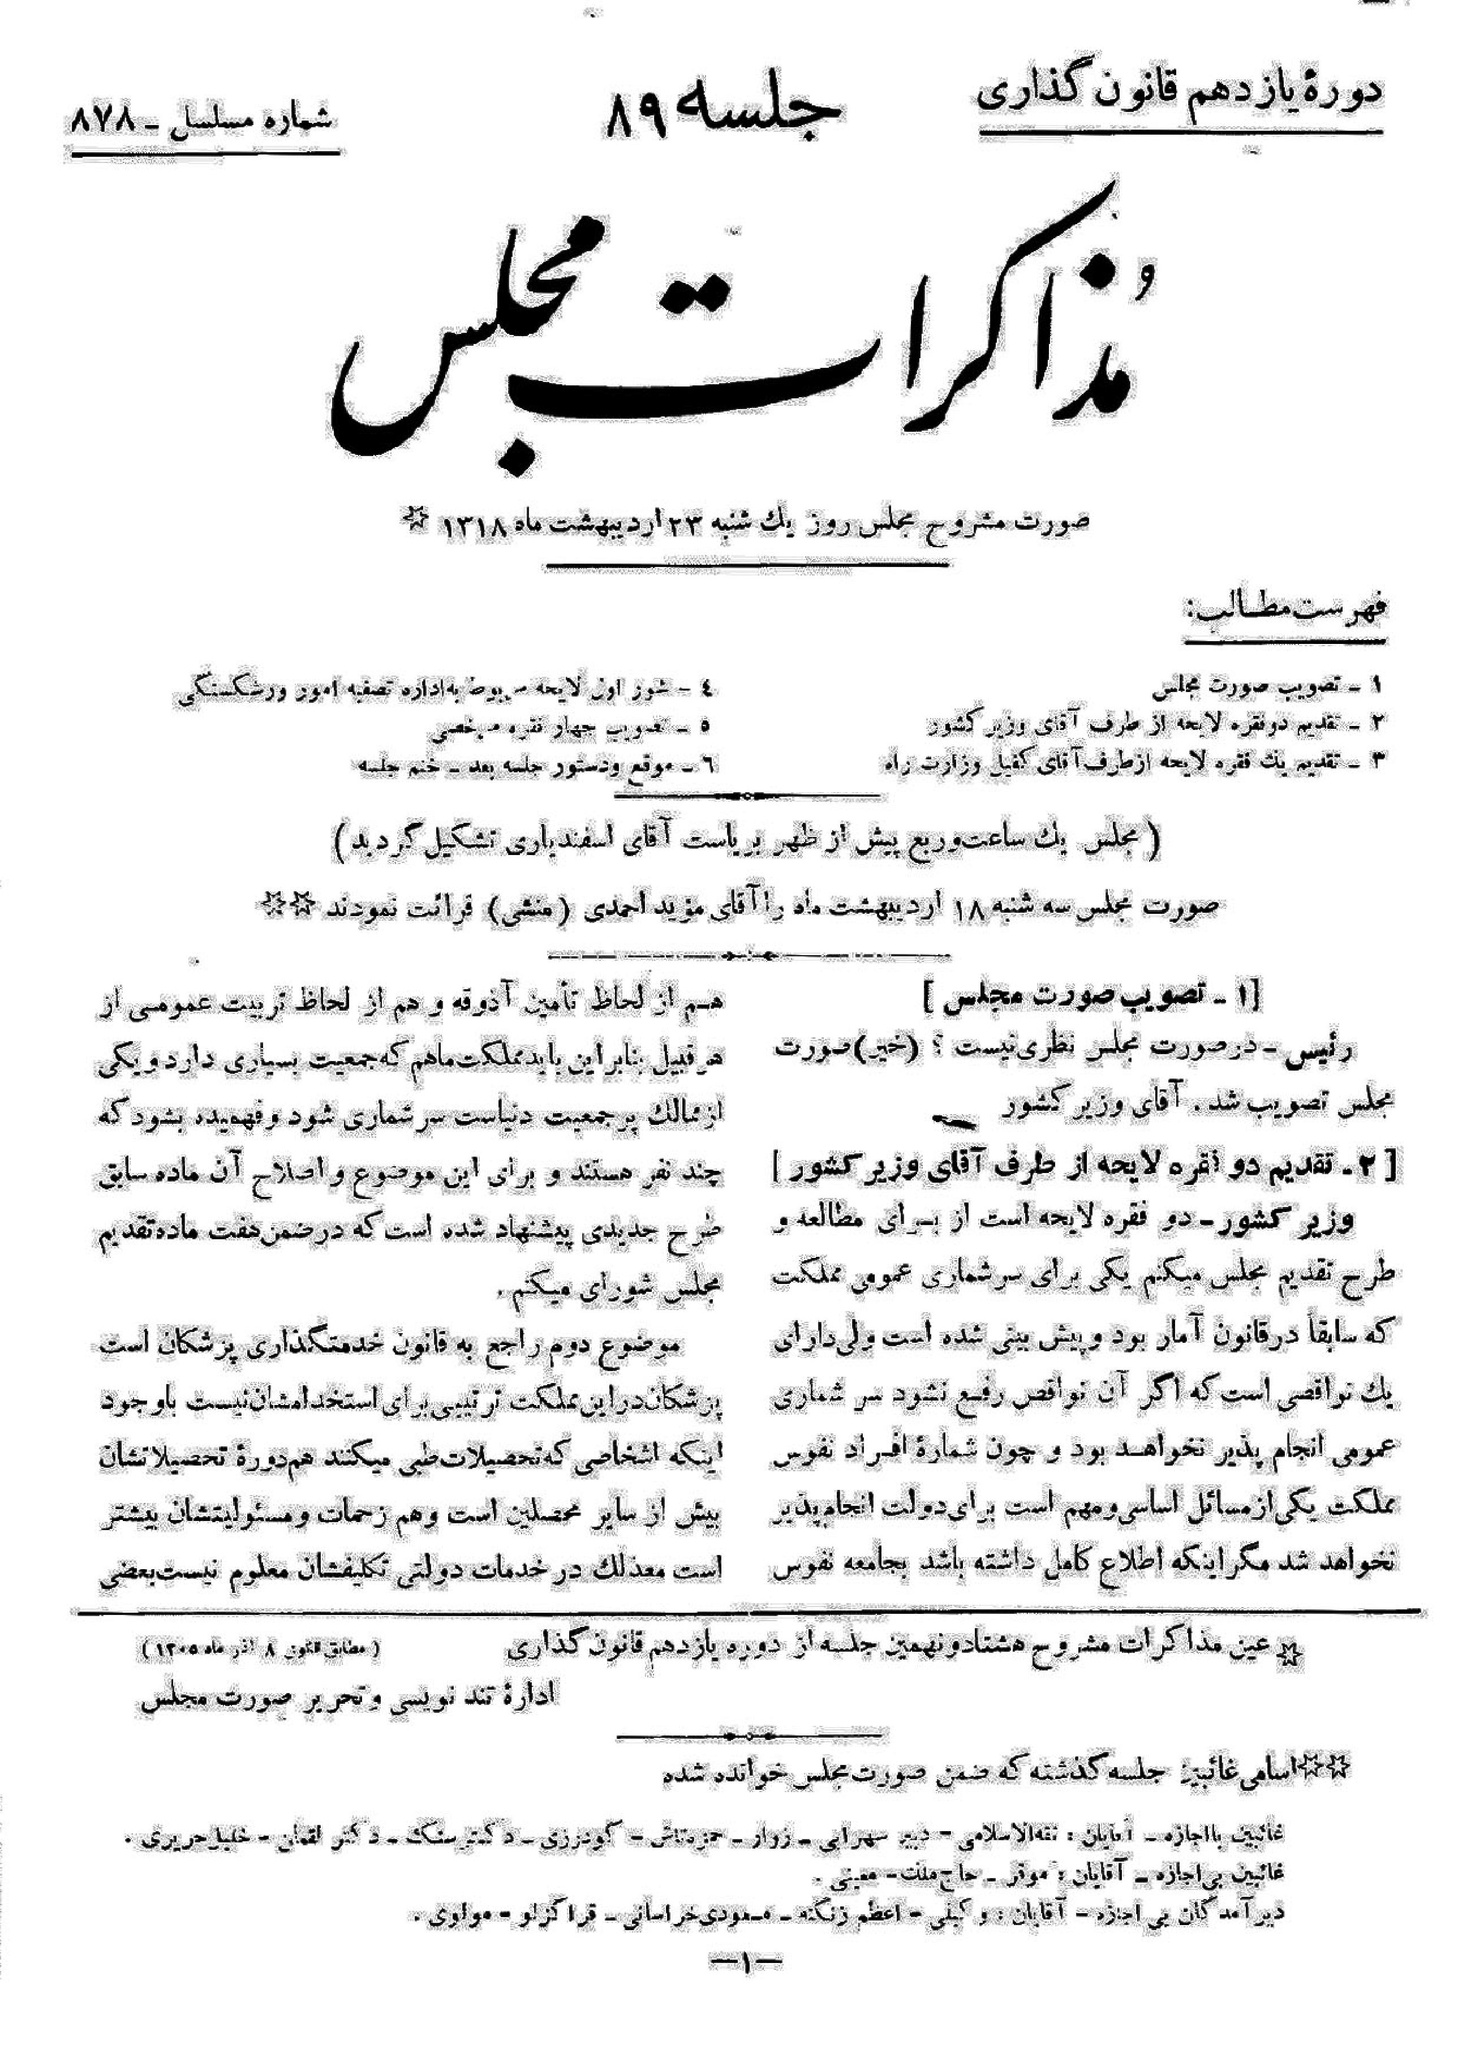 دورهٔ یازدهم قانون گذاری
جلسه ۸۹
شماره مسلسل ـ ۸۷۸
مذاکرات مجلس
صورت مشروح مجلس روز یك شنبه ۲۳ اردیبهشت ماه ۱۳۱۸ ☆
فهرست مطالب:
۱ ـ تصویب صورت مجلس
۲ ـ تقدیم دو فقره لایحه از طرف آقای وزیر کشور
۳ ـ تقدیم یك فقره لایحه از طرف آقای کفیل وزارت راه
٤ ـ شور اول لایحه مربوط به اداره تصفیه امور ورشکستگی
٥ ـ تصویب چهار فقره مرخصی
٦ ـ موقع و دستور جلسه بعد ـ ختم جلسه
( مجلس یك ساعت و ربع پیش از ظهر بریاست آقای اسفندیاری تشکیل گردید )
صورت مجلس سه شنبه ۱۸ اردیبهشت ماه را آقای مؤید احمدی (منشی) قرائت نمودند ☆☆
[۱ ـ تصویب صورت مجلس ]
رئیس ـ در صورت مجلس نظری نیست ؟ (خیر) صورت
مجلس تصویب شد . آقای وزیر کشور
[ ۲ ـ تقدیم دو فقره لایحه از طرف آقای وزیر کشور ]
وزیر کشور ـ دو فقره لایحه است از برای مطالعه و
طرح تقدیم مجلس میکنم یکی برای سرشماری عمومی مملکت
که سابقاً در قانون آمار بود و پیش بینی شده است ولی دارای
یك نواقصی است که اگر آن نواقص رفع نشود سر شماری
عمومی انجام پذیر نخواهد بود و چون شمارهٔ افراد نفوس
مملکت یکی از مسائل اساسی و مهم است برای دولت انجام پذیر
نخواهد شد مگر اینکه اطلاع کامل داشته باشد بجامعه نفوس
هم از لحاظ تأمین آذوقه و هم از لحاظ تربیت عمومی از
هر قبیل بنابر این باید مملکت ما هم که جمعیت بسیاری دارد و یکی
از ممالك پر جمعیت دنیاست سر شماری شود و فهمیده بشود که
چند نفر هستند و برای این موضوع و اصلاح آن ماده سابق
طرح جدیدی پیشنهاد شده است که در ضمن هفت ماده تقدیم
مجلس شورای میکنم .
موضوع دوم راجع به قانون خدمتگذاری پزشکان است
پزشکان در این مملکت ترتیبی برای استخدامشان نیست با وجود
اینکه اشخاصی که تحصیلات طبی میکنند هم دورهٔ تحصیلاتشان
بیش از سایر محصلین است و هم زحمات و مسئولیتشان بیشتر
است معذلك در خدمات دولتی تکلیفشان معلوم نیست بعضی
☆ عین مذاکرات مشروح هشتاد و نهمین جلسه از دوره یازدهم قانون گذاری
( مطابق قانون ۸ آذر ماه ۱۳۰۵ )
ادارهٔ تند نویسی و تحریر صورت مجلس
☆☆ اسامی غائبین جلسه گذشته که ضمن صورت مجلس خوانده شده
غائبین با اجازه ـ آقایان : ثقةالاسلامی ـ دبیر سهرابی ـ زوار ـ حمزه تاش ـ گودرزی ـ دکتر سنگ ـ دکتر لقمان ـ خلیل حریری .
غائبین بی اجازه ـ آقایان : موقر ـ حاج ملك ـ معینی .
دیر آمدگان بی اجازه ـ آقایان : وکیلی ـ اعظم زنگنه ـ مسعودی خراسانی ـ قراگزلو ـ مولوی .
—۱—